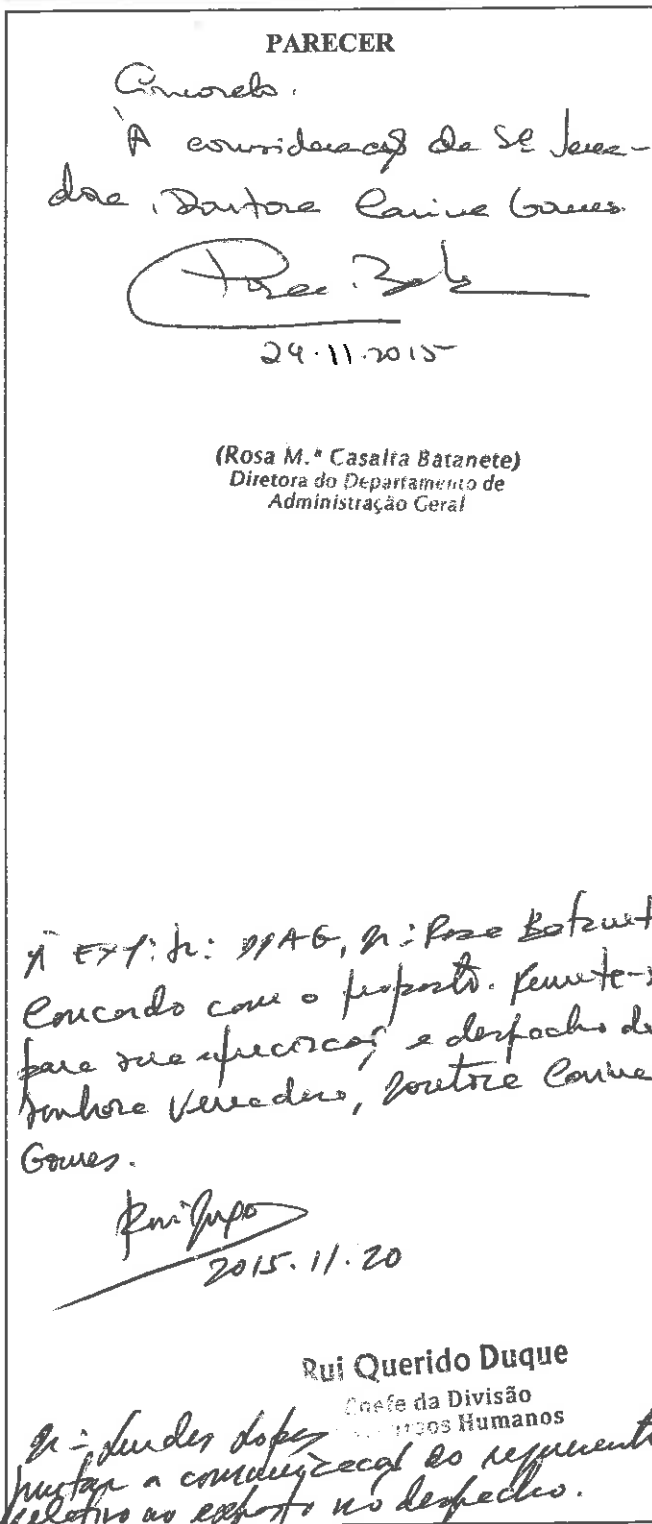 PARECER
Concordo.
À consideração da Sr.ª Verea-
dora, Doutora Carina Gomes.
24.11.2015
(Rosa M.ª Casalta Batanete)
Diretora do Departamento de
Administração Geral
À Exm.ª Sr.ª DDAG, Dr.ª Rosa Batanete
Concordo com o proposto. Remete-se
para sua apreciação e despacho da
Senhora Vereadora, Doutora Carina
Gomes.
2015.11.20
Rui Querido Duque
Chefe da Divisão
Humanos
Lopes
juntar a comunicação ao requerente
relativo ao exposto no despacho.